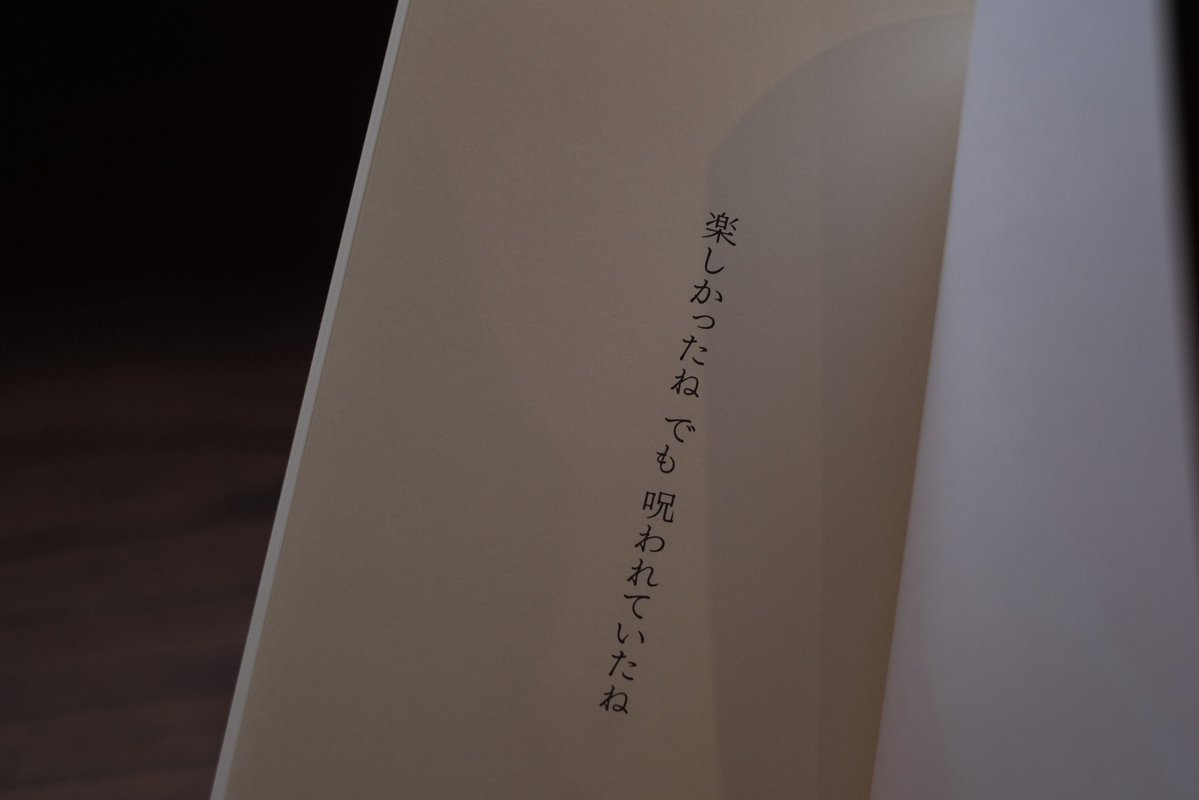 楽しかったね でも 呪われていたね